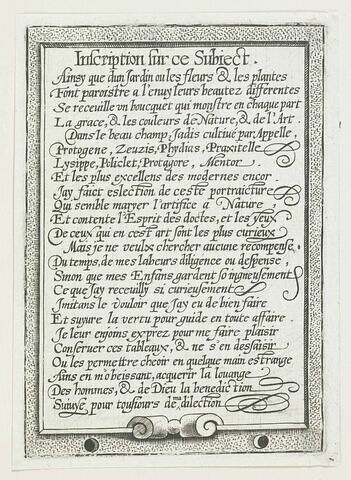 Inscription sur ce Subiect.
Ainsy que d'un Jardin ou les fleurs & les plantes
Font paroistre a l'enuy leurs beautez differentes
Se receuille vn boucquet qui monstre en chaque part
La grace, & les couleurs de Nature, & de l'Art.
Dans le beau champ, Jadis cultiué par Appelle,
Protogene, Zeuzis, Phydias, Praxitelle
Lysippe, Policlet, Protagore, Mentor.
Et les plus excellens des modernes encor.
Jay faict eslection de ceste portraicture
Qui semble maryer l'artifice a Nature
Et contente l'Esprit des doctes, et les yeux
De ceux qui en cest art sont les plus curieux
Mais je ne veulx chercher aucune recompense.
Du temps, de mes labeurs diligence ou despense,
Sinon que mes Enfans gardent songneusement
Ce que Jay receuilly si curieusement
Imitans le vouloir que Jay eu de bien faire
Et suyure la vertu pour guide en toute affaire.
Je leur enjoins exprez, pour me faire plaisir
Conseruer ces tableaux, & ne s'en desaisir
Ou les permettre cheoir en quelque main estrange
Ains en m'obeissant, acquerir la louange
Des hommes, & de Dieu la benediction
Suiuye pour tousiours de ma dilection